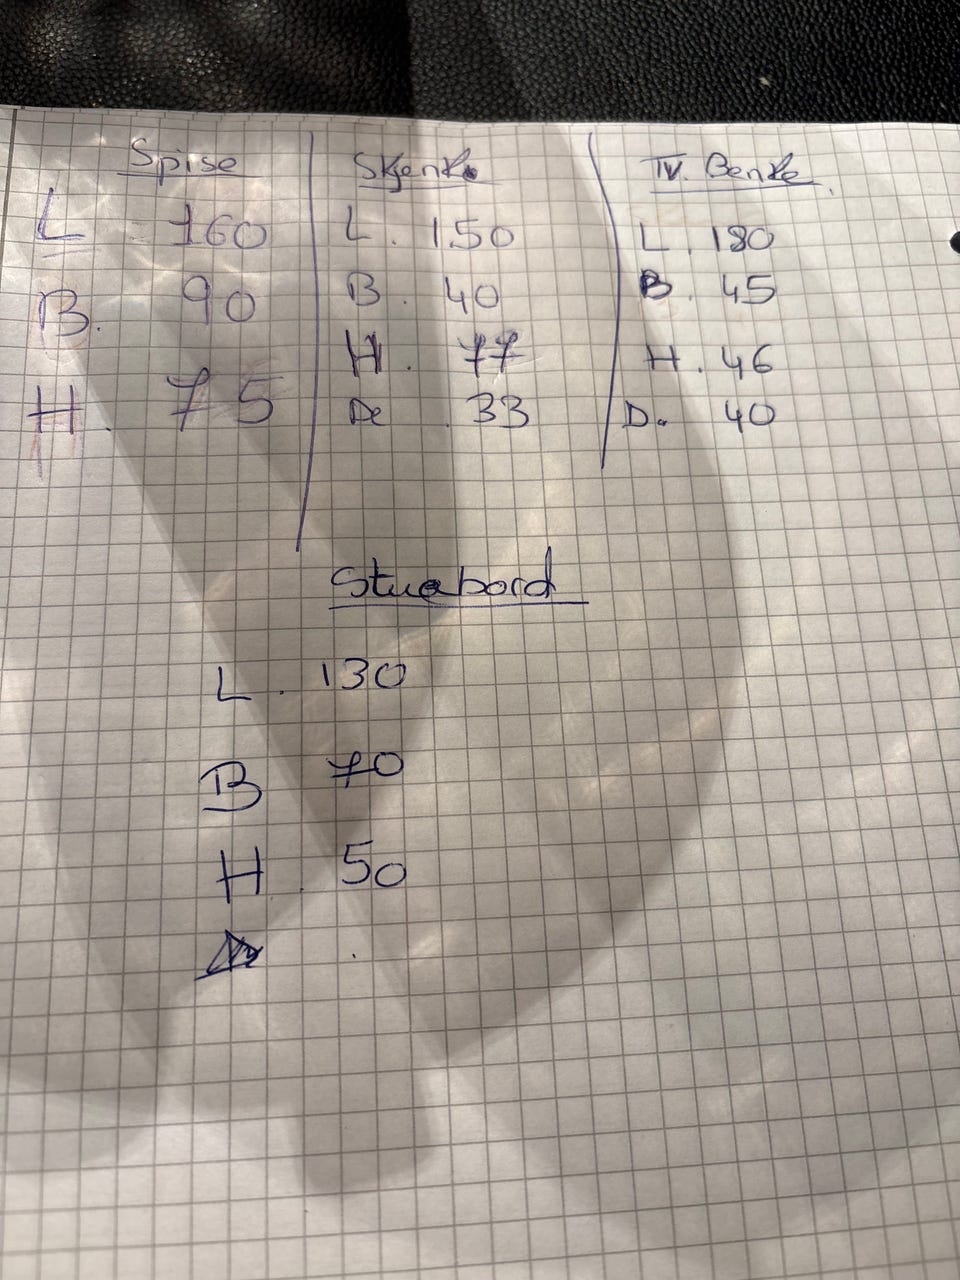 Spise
L 160
B. 90
H. 75
Skjenk
L. 150
B. 40
H. 77
De. 33
TV. Benke
L. 180
B. 45
H. 46
D. 40
Stuebord
L. 130
B 70
H. 50